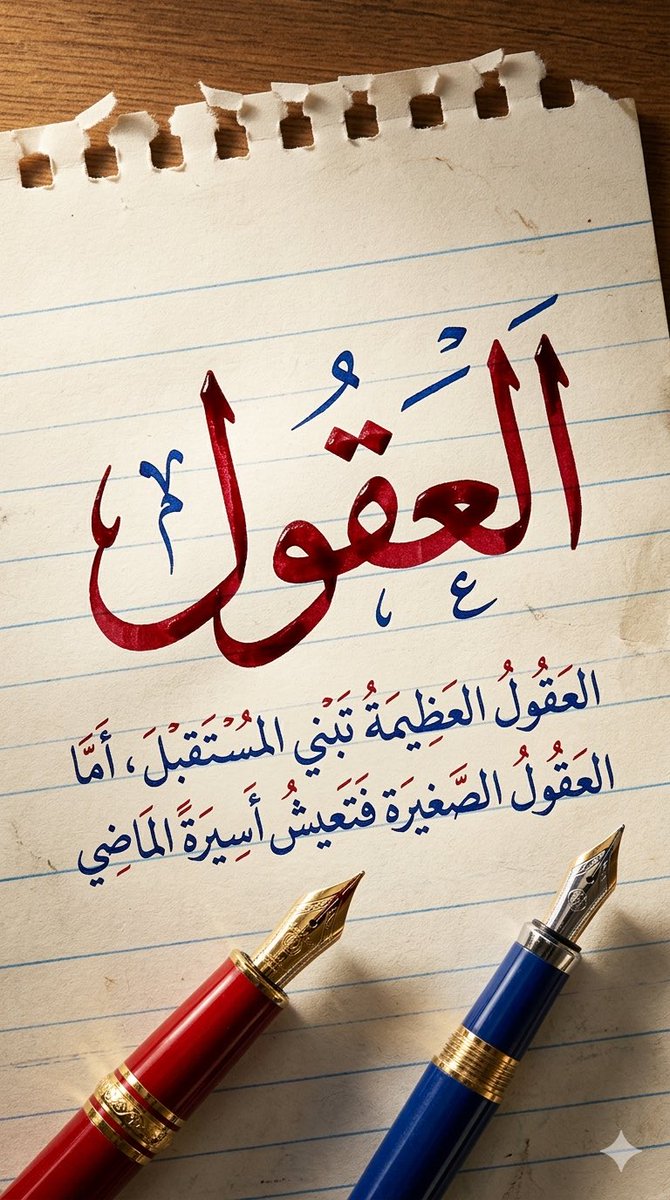 العقُول
العَقُولُ العَظِيمَةُ تَبْني المُسْتَقبْلَ، أَمَّا
العَقُولُ الصَّغيرَة فَتَعيشُ أَسِيرَةً المَاضِي